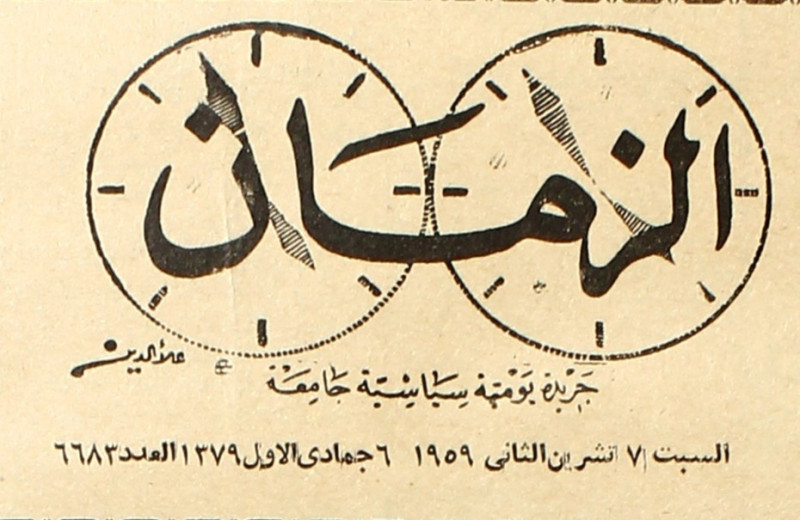 الزمان
علاءالدين
جريدة يومية سياسية جامعة
السبت ٧ تشرين الثانى ١٩٥٩ ٦ جمادى الاول ١٣٧٩ العدد ٦٦٨٣